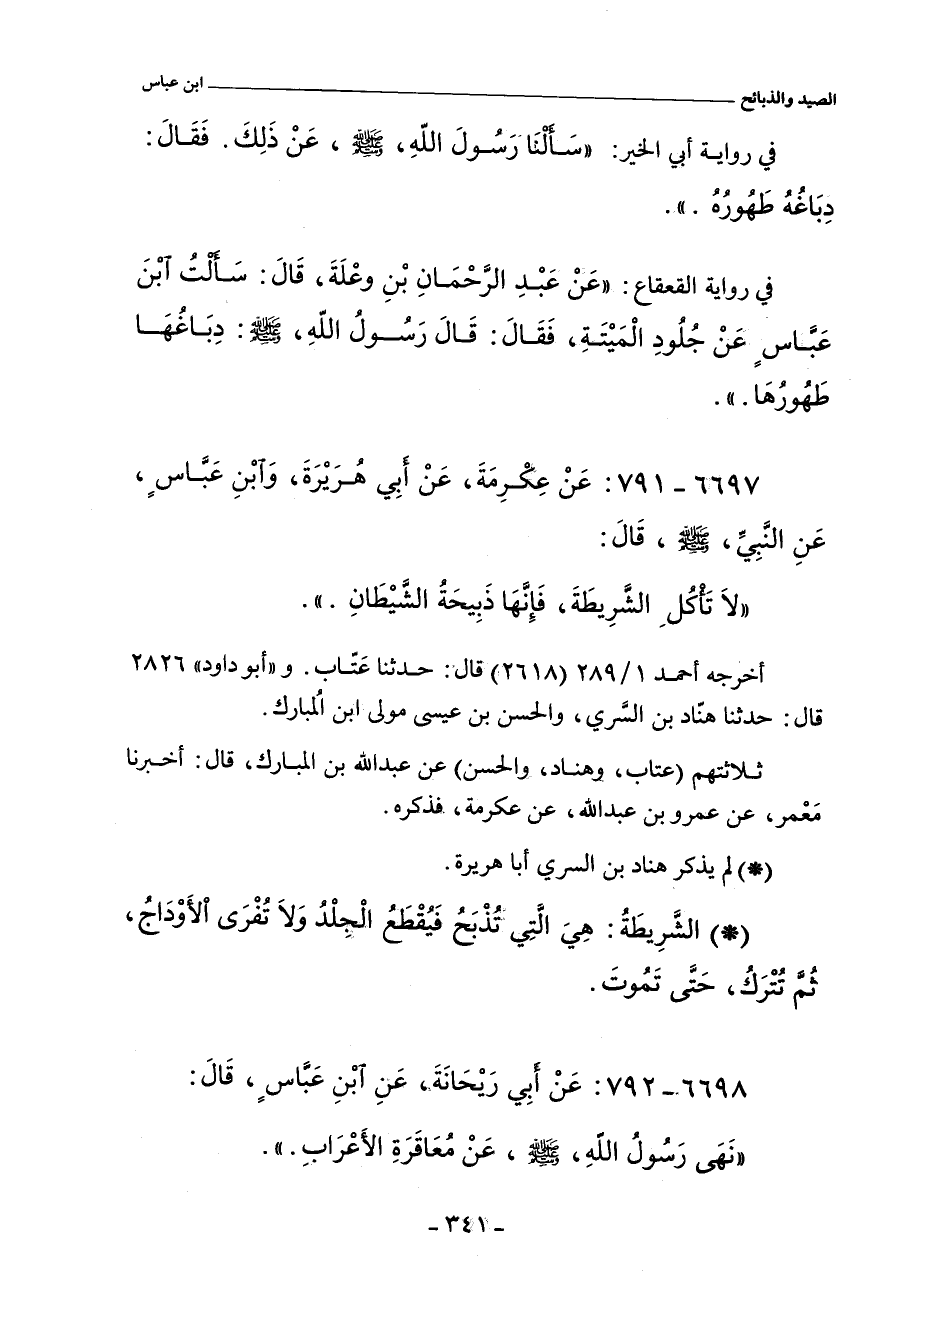 الصيد والذبائح ــــــــــــــــ ابن عباس
في رواية أبي الخير: «سَأَلْنَا رَسُولَ اللّهِ، ﷺ ، عَنْ ذَلِكَ. فَقَالَ:
دِبَاغُهُ طَهُورُهُ .».
في رواية القعقاع: «عَنْ عَبْدِ الرَّحْمَانِ بْنِ وعْلَةَ، قَالَ: سَأَلْتُ آبْنَ
عَبَّاسٍ عَنْ جُلُودِ الْمَيْتَةِ، فَقَالَ: قَالَ رَسُولُ اللّهِ، ﷺ: دِبَاغُهَا
طَهُورُهَا.».
٦٦٩٧ - ٧٩١: عَنْ عِكْرِمَةَ، عَنْ أَبِي هُرَيْرَةَ، وَآبْنِ عَبَّاسٍ،
عَنِ النَّبِيِّ، ﷺ ، قَالَ:
«لاَ تَأْكُلِ الشَّرِيطَةَ، فَإِنَّهَا ذَبِيحَةُ الشَّيْطَانِ .».
أخرجه أحمد ١/ ٢٨٩ (٢٦١٨) قال: حدثنا عَتّاب. و «أبو داود» ٢٨٢٦
قال: حدثنا هنّاد بن السَّري، والحسن بن عيسى مولى ابن المُبارك.
ثلاثتهم (عتاب، وهناد، والحسن) عن عبدالله بن المبارك، قال: أخبرنا
مَعْمر، عن عمرو بن عبدالله، عن عكرمة، فذكره.
(*) لم يذكر هناد بن السري أبا هريرة.
(*) الشَّرِيطَةُ: هِيَ الَّتِي تُذْبَحُ فَيُقْطَعُ الْجِلْدُ وَلاَ تُفْرَى الْأَوْدَاجُ،
ثُمَّ تُتْرَكُ، حَتَّى تَمُوتَ.
٦٦٩٨ - ٧٩٢: عَنْ أَبِي رَيْحَانَةَ، عَنِ آبْنِ عَبَّاسٍ، قَالَ:
«نَهَى رَسُولُ اللّهِ، ﷺ ، عَنْ مُعَاقَرَةِ الأَعْرَابِ.».
- ٣٤١ -